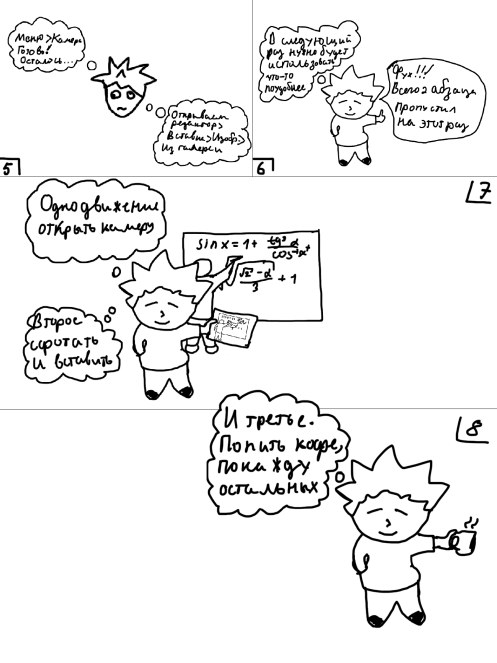 Меню > Камера
Готово!
Осталось...
Открываем
редактор >
Вставка > Изобр >
Из галереи
5
В следующий
раз нужно будет
использовать
что-то
поудобнее
Фух!!!
Всего 2 абзаца
Пропустил
на этот раз
6
7
Одно движение
открыть камеру
sin x = 1 +
Второе
сфотать
и вставить
+ 1
8
И третье.
Попить кофе,
пока жду
остальных